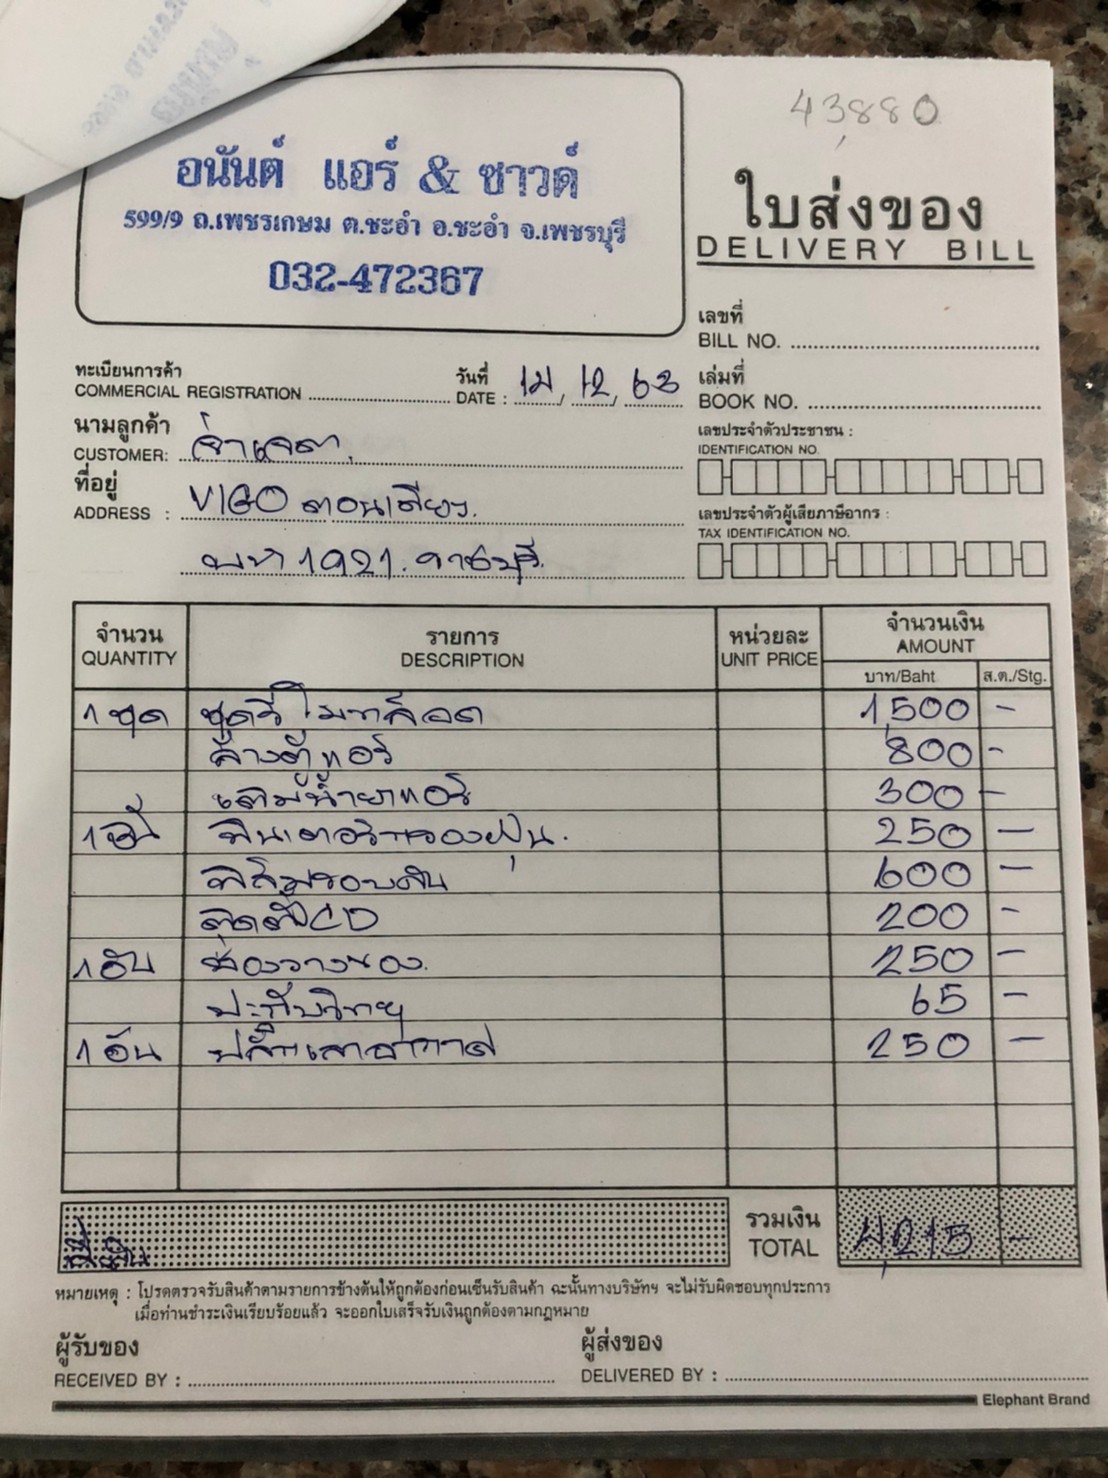 43,880
อนันต์ แอร์ & ซาวด์
599/9 ถ.เพชรเกษม ต.ชะอำ อ.ชะอำ จ.เพชรบุรี
032-472367
ใบส่งของ
DELIVERY BILL
เลขที่
BILL NO.
ทะเบียนการค้า
COMMERCIAL REGISTRATION
วันที่
DATE : 14, 12, 63
เล่มที่
BOOK NO.
นามลูกค้า
CUSTOMER:
เลขประจำตัวประชาชน :
IDENTIFICATION NO.
ที่อยู่
ADDRESS : VIGO ตอนเดียว
เลขประจำตัวผู้เสียภาษีอากร :
TAX IDENTIFICATION NO.
1921 ราชบุรี
จำนวน รายการ หน่วยละ จำนวนเงิน
QUANTITY DESCRIPTION UNIT PRICE AMOUNT
บาท/Baht ส.ต./Stg.
1 ชุด ชุดรีโมทล็อด 1,500 -
ล้างตู้แอร์ 800 -
เติมน้ำยาแอร์ 300 -
1 ฟิลเตอร์กรองฝุ่น. 250 -
ฟิล์มรอบคัน 600 -
ติดตั้ง CD 200 -
1 อัน ช่องวางของ. 250 -
ปะกับวิทยุ 65 -
1 อัน ปลั๊กเสาอากาศ 250 -
รวมเงิน
TOTAL 4,215 -
หมายเหตุ : โปรดตรวจรับสินค้าตามรายการข้างต้นให้ถูกต้องก่อนเซ็นรับสินค้า ฉะนั้นทางบริษัทฯ จะไม่รับผิดชอบทุกประการ
เมื่อท่านชำระเงินเรียบร้อยแล้ว จะออกใบเสร็จรับเงินถูกต้องตามกฎหมาย
ผู้รับของ
RECEIVED BY :
ผู้ส่งของ
DELIVERED BY :
Elephant Brand